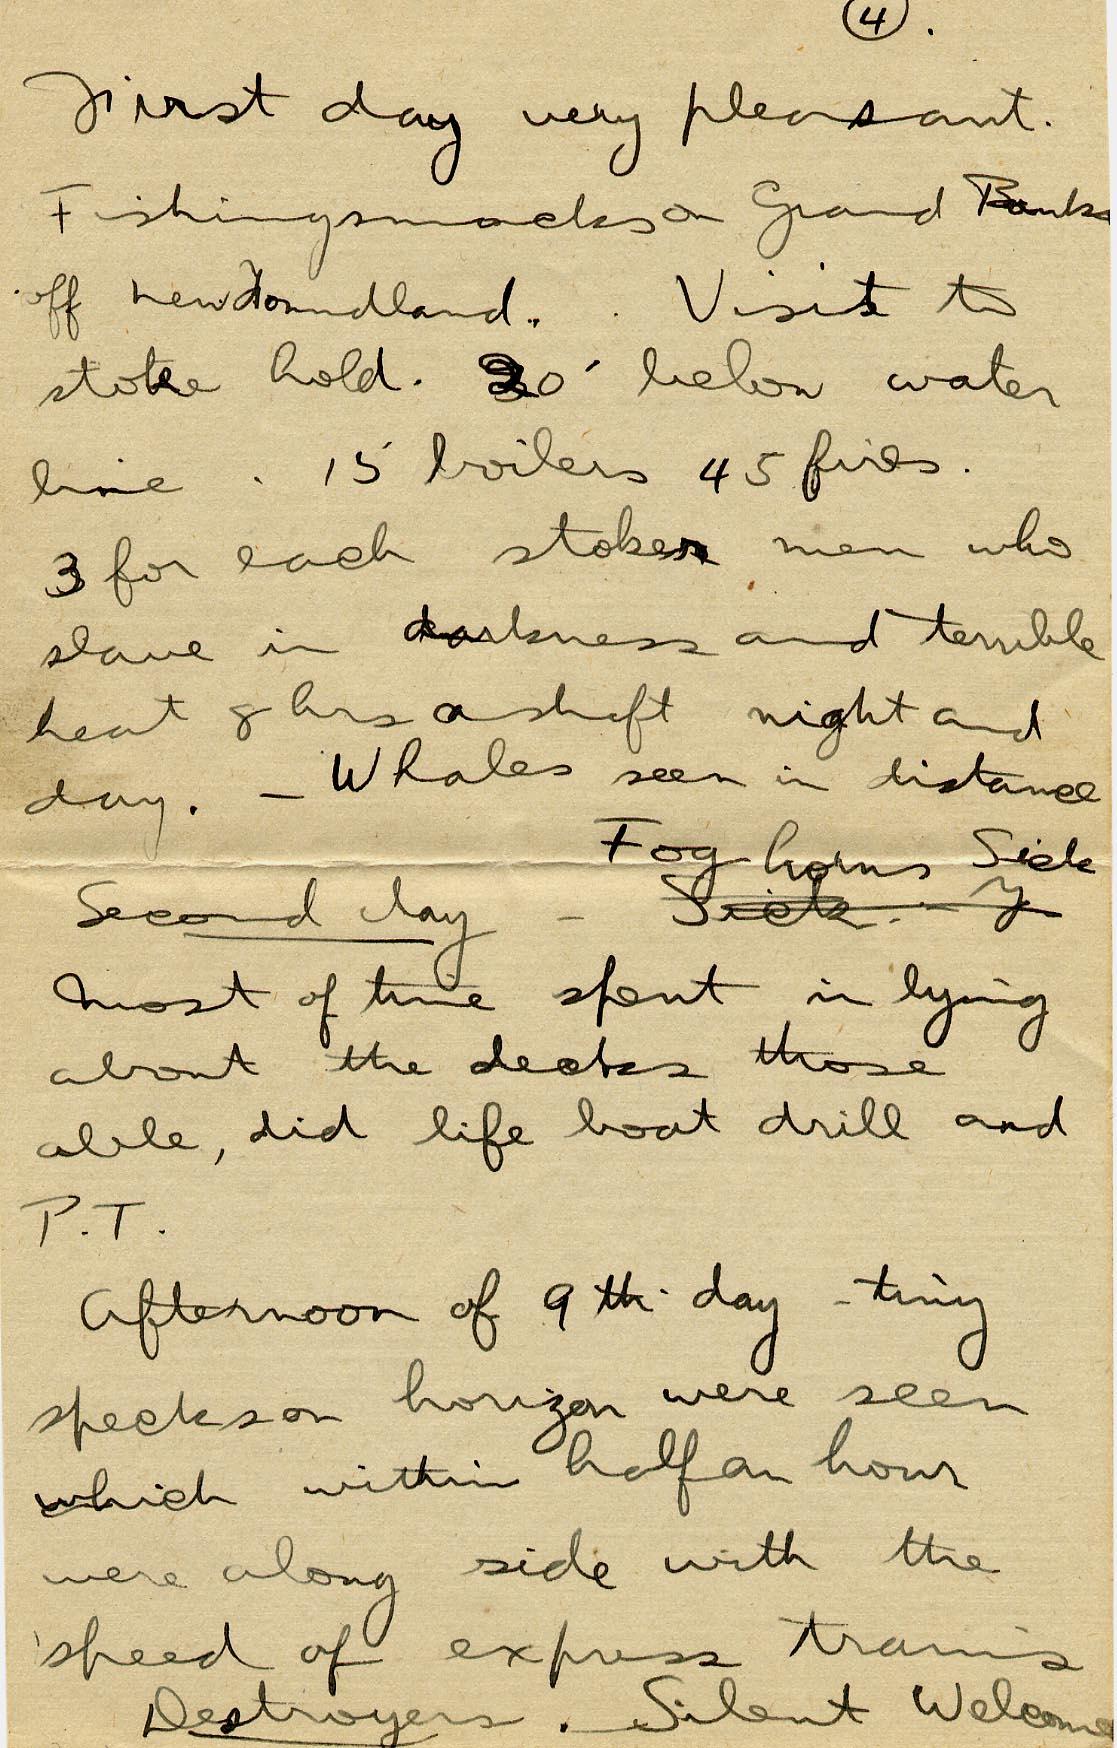 4.
First day very pleasant.
Fishingsmacks on Grand Banks
off newfoundland. . Visit to
stoke hold. 30' below water
line . 15 boilers 45 fires.
3 for each stoker men who
slave in darkness and terrible
heat 8 hrs a shift night and
day. - Whales seen in distance
Fog horns Sick
Second day - Sick. - Y
Most of time spent in lying
about the decks those
able, did life boat drill and
P.T.
Afternoon of 9th. day - tiny
specks on horizon were seen
which within half an hour
were along side with the
speed of express trains
Destroyers. Silent Welcome